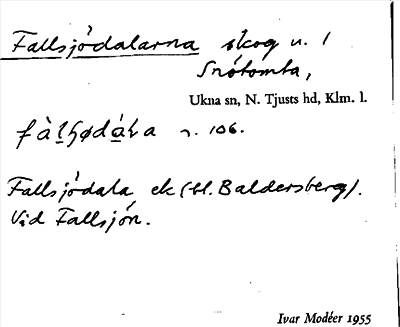 Fallsjödalarna skog u. /
Snötomta,
Ukna sn, N. Tjusts hd, Klm. l.
n. 106.
Fallsjödala ek (tl. Baldersberg).
Vid Fallsjön.
Ivar Modéer 1955